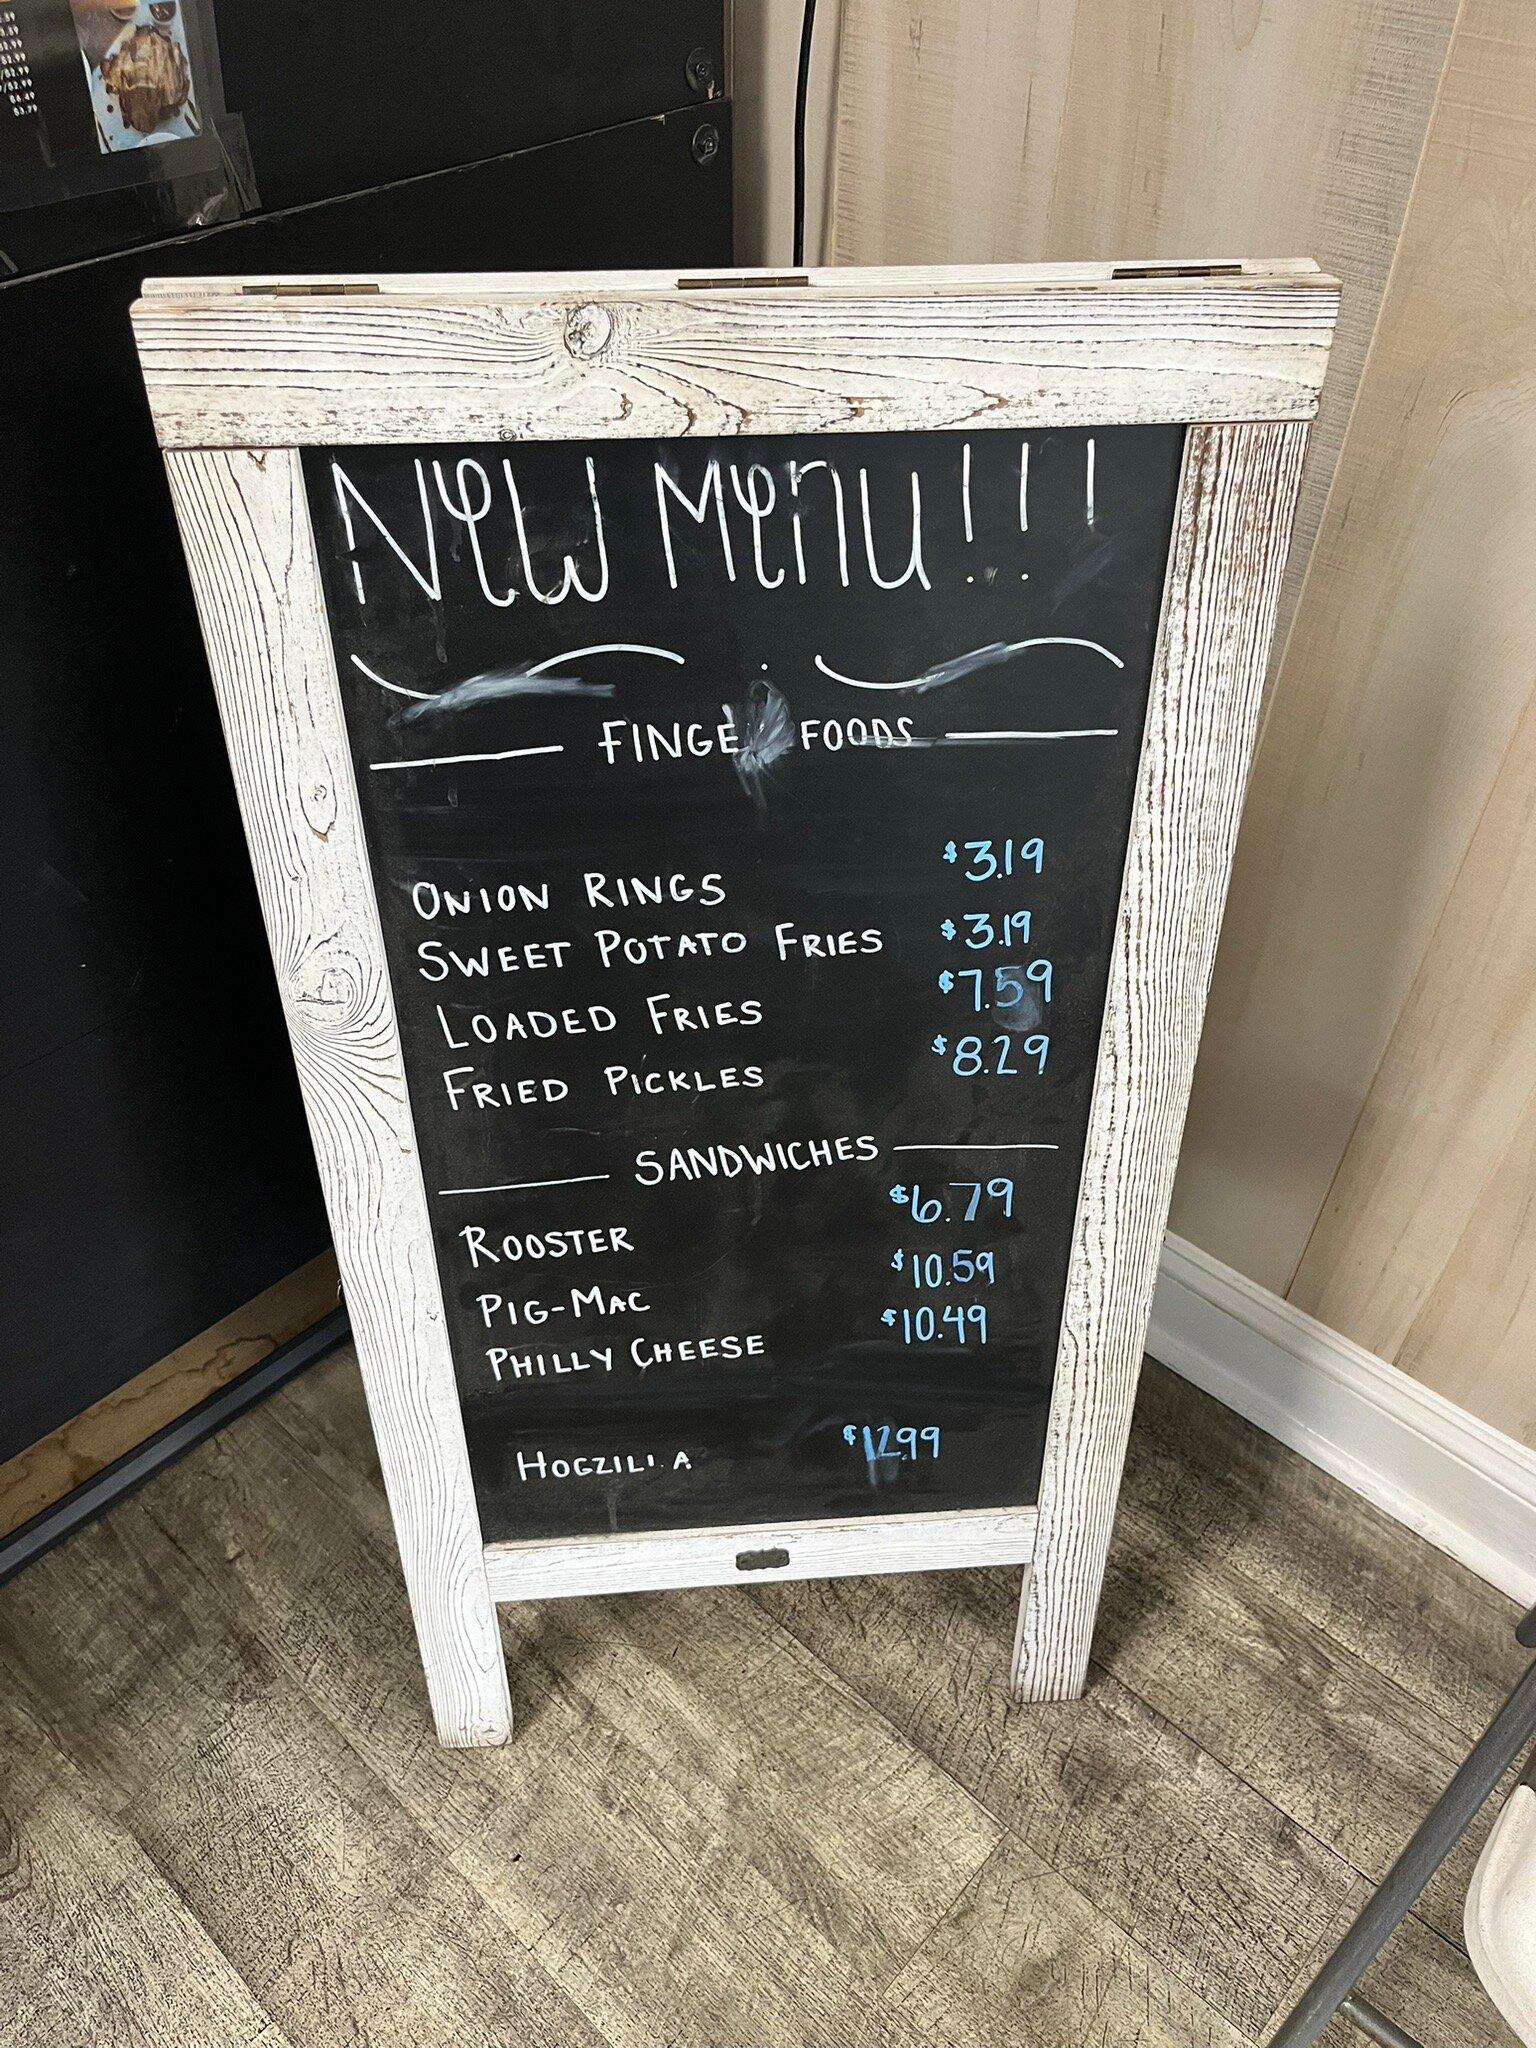 .59
3.59
$1.99
$2.99
/$2.99
$6.49
$3.79
New Menu!!!
FINGE FOODS
ONION RINGS $3.19
SWEET POTATO FRIES $3.19
LOADED FRIES $7.59
FRIED PICKLES $8.29
SANDWICHES
ROOSTER $6.79
PIG-MAC $10.59
PHILLY CHEESE $10.49
HOGZILI.A $12.99